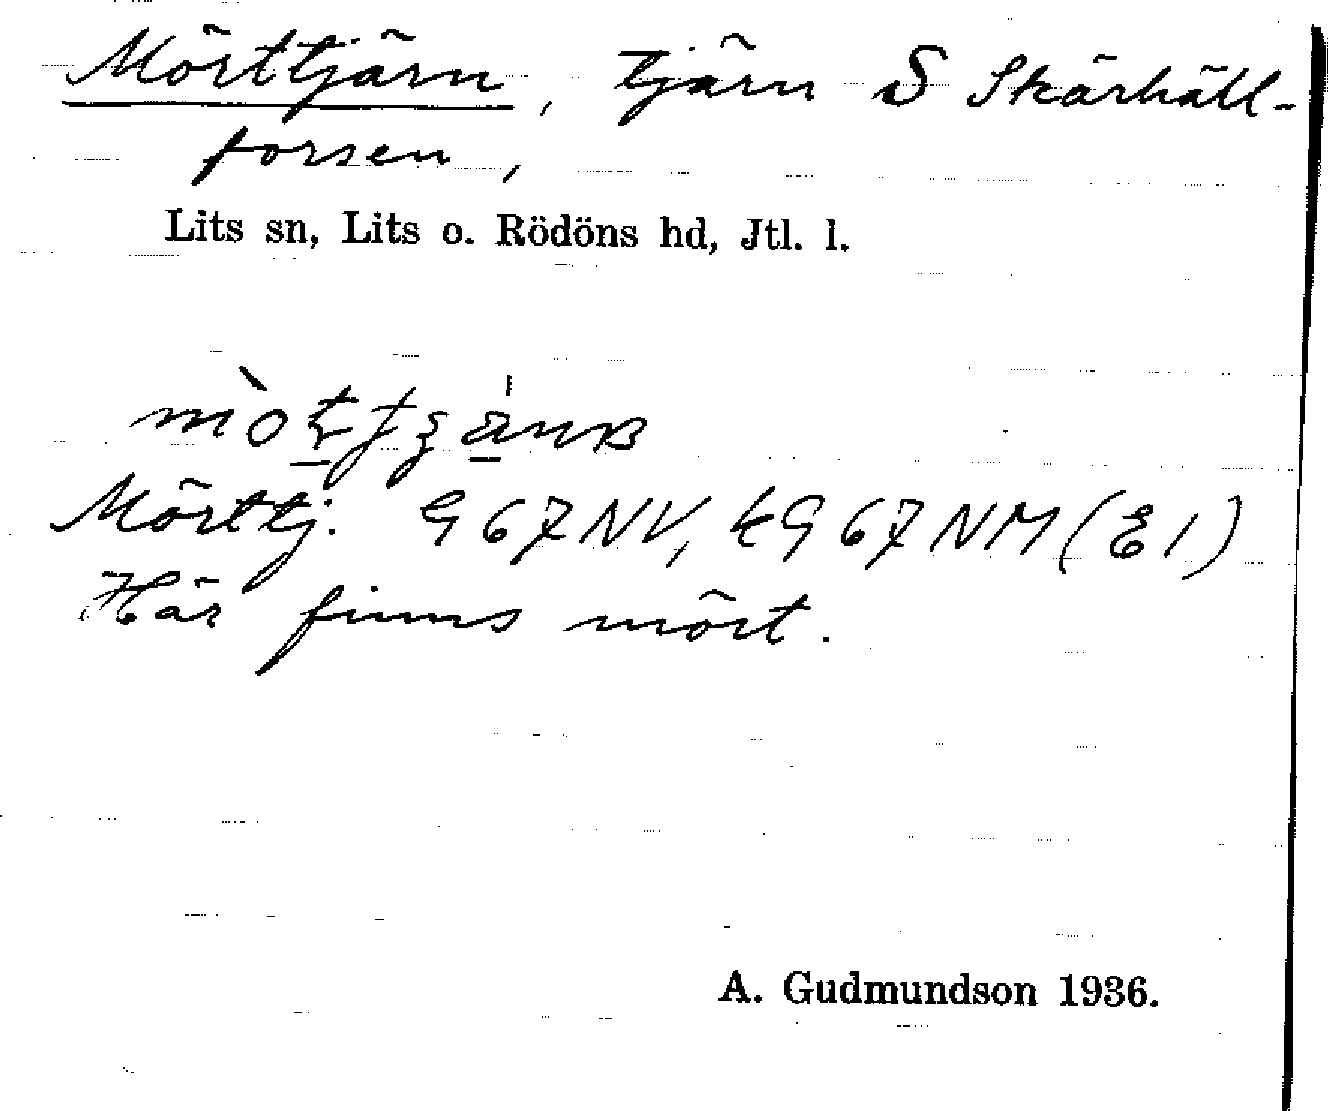 Mörttjärn, tjärn S Skärhäll-
forsen,
Lits sn, Lits o. Rödöns hd, Jtl. l.
Mörttj. G 67 NV, kG 67 NM (E 1)
Här finns mört.
A. Gudmundson 1936.